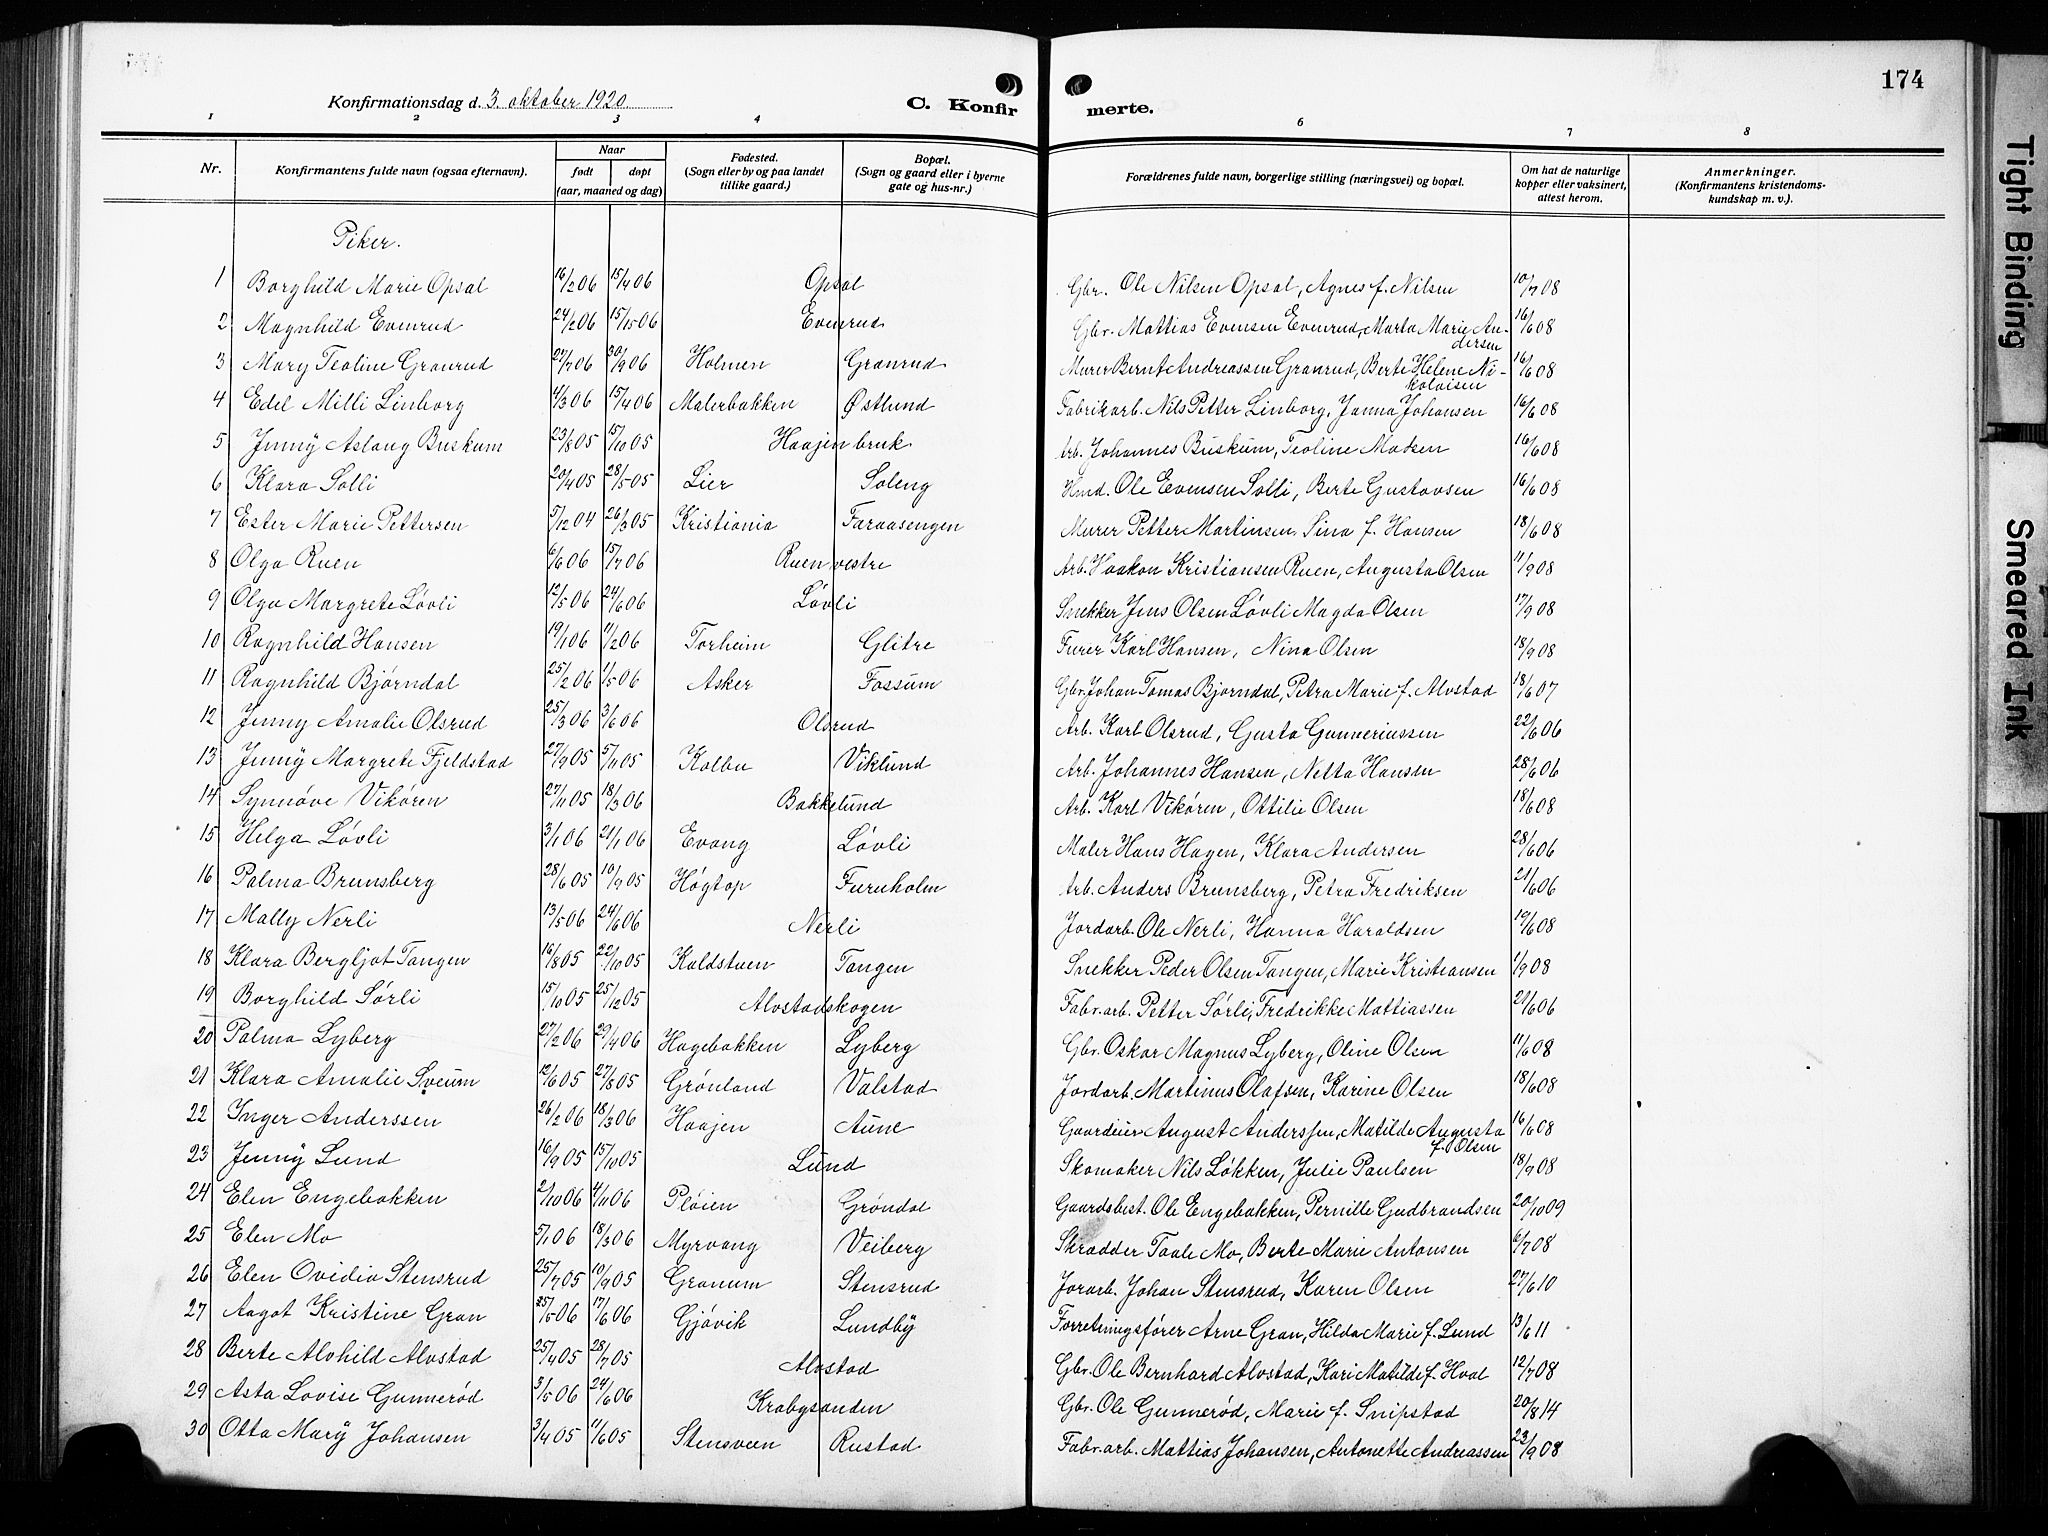 174
Konfirmationsdag d. 3 oktober 1920
C. Konfirmerte.
1 2 3 4 6 7 8
Nr. Konfirmantens fulde navn (ogsaa efternavn). Naar født døpt (aar, maaned og dag) Fødested. (Sogn eller by og paa landet tillike gaard.) Bopæl. (Sogn og gaard eller i byerne gate og hus-nr.) Forældrenes fulde navn, borgerlige stilling (næringsvei) og bopæl. Om hat de naturlige kopper eller vaksinert, attest herom. Anmerkninger. (Konfirmantens kristendoms-kundskap m. v.).
Piker.
1 Borghild Marie Opsal 16/2 06 15/4 06 Opsal Gbr. Ole Nilsen Opsal, Agnes f. Nilsen 10/7 08
2 Magnhild Evenrud 24/2 06 Evenrud Gbr. Mattias Evensen Evenrud, Marta Marie Andersen 16/6 08
3 Mary Teoline Granrud 27/7 06 30/9 06 Holmen Granrud Murer Bernt Andreassen Granrud, Berte Helene Nikolaisen 16/6 08
4 Edel Milli Linborg 4/3 06 15/4 06 Malerbakken Østlund Fabrikarb. Nils Petter Linborg, Janna Johansen 16/6 08
5 Jenny Aslaug Buskum 23/8 05 15/10 05 Haajen bruk Arb. Johannes Buskum, Teoline Madsen 16/6 08
6 Klara Solli 20/4 05 28/5 05 Lier Soleng Hmd. Ole Evensen Solli, Berte Gustavsen 16/6 08
7 Ester Marie Pettersen 5/12 04 26/3 05 Kristiania Faraasengen Murer Petter Martinsen, Sina f. Hansen 18/6 08
8 Olga Ruen 6/6 06 15/7 06 Ruen vestre Arb. Haakon Kristiansen Ruen, Augusta Olsen 11/9 08
9 Olga Margrete Løvli 12/5 06 24/6 06 Løvli Snekker Jens Olsen Løvli Magda Olsen 17/9 08
10 Ragnhild Hansen 19/1 06 11/2 06 Torheim Glitre Furer Karl Hansen, Nina Olsen 18/9 08
11 Ragnhild Bjørndal 25/2 06 1/5 06 Asker Fossum Gbr. Johan Tomas Bjørndal, Petra Marie f. Alvstad 18/6 07
12 Jenny Amalie Olsrud 25/3 06 3/6 06 Olsrud Arb. Karl Olsrud, Gusta Gunneriussen 22/6 06
13 Jenny Margrete Fjeldstad 27/9 05 5/11 05 Kolbu Viklund Arb. Johannes Hansen, Netta Hansen 28/6 06
14 Synnøve Vikøren 27/11 05 18/3 06 Bakkelund Arb. Karl Vikøren, Ottilie Olsen 18/6 08
15 Helga Løvli 3/1 06 21/1 06 Evang Løvli Maler Hans Hagen, Klara Andersen 28/6 06
16 Palma Brunsberg 28/6 05 10/9 05 Høgtop Furuholm Arb. Anders Brunsberg, Petra Fredriksen 21/6 06
17 Mally Nerli 13/5 06 24/6 06 Nerli Jordarb. Ole Nerli, Hanna Haraldsen 19/6 08
18 Klara Bergljot Tangen 16/8 05 22/10 05 Kaldstuen Tangen Snekker Peder Olsen Tangen, Marie Kristiansen 1/9 08
19 Borghild Sørli 15/10 05 25/12 05 Alvstadskogen Fabr.arb. Petter Sørli, Fredrikke Mattiassen 21/6 06
20 Palma Lyberg 27/2 06 29/4 06 Hagebakken Lyberg Gbr. Oskar Magnus Lyberg, Oline Olsen 11/6 08
21 Klara Amalie Sveum 12/6 05 27/8 05 Grønland Valstad Jordarb. Martinus Olafsen, Karine Olsen 18/6 08
22 Inger Anderssen 26/2 06 18/3 06 Haajen Aune Gaardeier August Anderssen, Matilde Augusta f. Olsen 16/6 08
23 Jenny Lund 16/9 05 15/10 05 Lund Skomaker Nils Løkken, Julie Paulsen 18/9 08
24 Elen Engebakken 2/10 06 4/11 06 Pløien Grøndal Gaardsbest. Ole Engebakken, Pernille Gudbrandsen 20/10 09
25 Elen Mo 5/1 06 18/3 06 Myrvang Veiberg Skrædder Taale Mo, Berte Marie Antonsen 6/7 08
26 Elen Ovidia Stensrud 25/7 05 10/9 05 Granum Stensrud Jorarb. Johan Stensrud, Karen Olsen 27/6 10
27 Aagot Kristine Gran 25/5 06 17/6 06 Gjøvik Lundby Forretningsfører Arne Gran, Hilda Marie f. Lund 13/6 11
28 Berte Alvhild Alvstad 25/4 05 28/7 05 Alvstad Gbr. Ole Bernhard Alvstad, Kari Matilde f. Hval 12/7 08
29 Asta Lovise Gunnerød 3/5 06 24/6 06 Krabysanden Gbr. Ole Gunnerød, Marie f. Snipstad 20/8 14
30 Otta Mary Johansen 3/4 05 11/6 05 Stensveen Rustad Fabr.arb. Mattias Johansen, Antonette Andreassen 23/9 08
Tight Binding
Smeared Ink